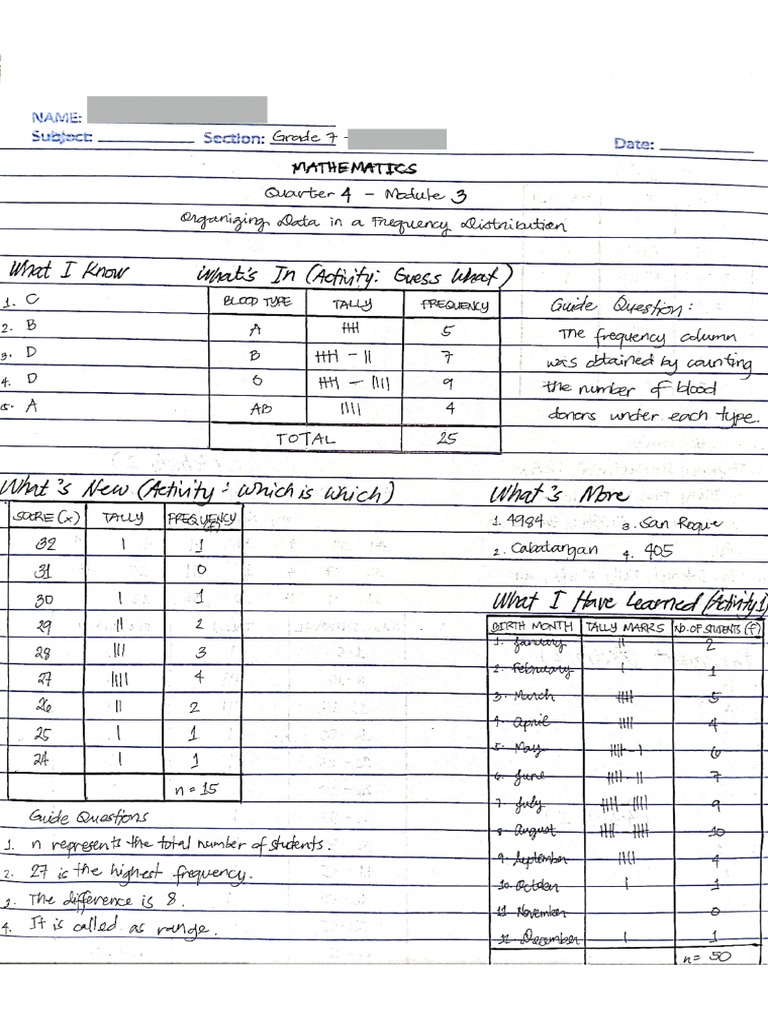 NAME:
Subject: Section: Grade 7 - Date:
MATHEMATICS
Quarter 4 - Module 3
Organizing Data in a Frequency Distribution
What I Know
1. C
2. B
3. D
4. D
5. A
What's In (Activity: Guess What)
BLOOD TYPE TALLY FREQUENCY
A 卌 5
B 卌 - || 7
O 卌 - |||| 9
AB |||| 4
TOTAL 25
Guide Question:
The frequency column
was obtained by counting
the number of blood
donors under each type.
What's New (Activity: Which is Which)
SCORE (x) TALLY FREQUENCY (f)
32 | 1
31 0
30 | 1
29 || 2
28 ||| 3
27 |||| 4
26 || 2
25 | 1
24 | 1
n = 15
Guide Questions
1. n represents the total number of students.
2. 27 is the highest frequency.
3. The difference is 8.
4. It is called as range.
What's More
1. 4984 3. San Roque
2. Cabatangan 4. 405
What I Have Learned (Activity 1)
BIRTH MONTH TALLY MARKS NO. OF STUDENTS (f)
1. January || 2
2. February | 1
3. March 卌 5
4. April |||| 4
5. May 卌 - | 6
6. June 卌 - || 7
7. July 卌 - |||| 9
8. August 卌 - 卌 10
9. September |||| 4
10. October | 1
11. November 0
12. December | 1
n = 50